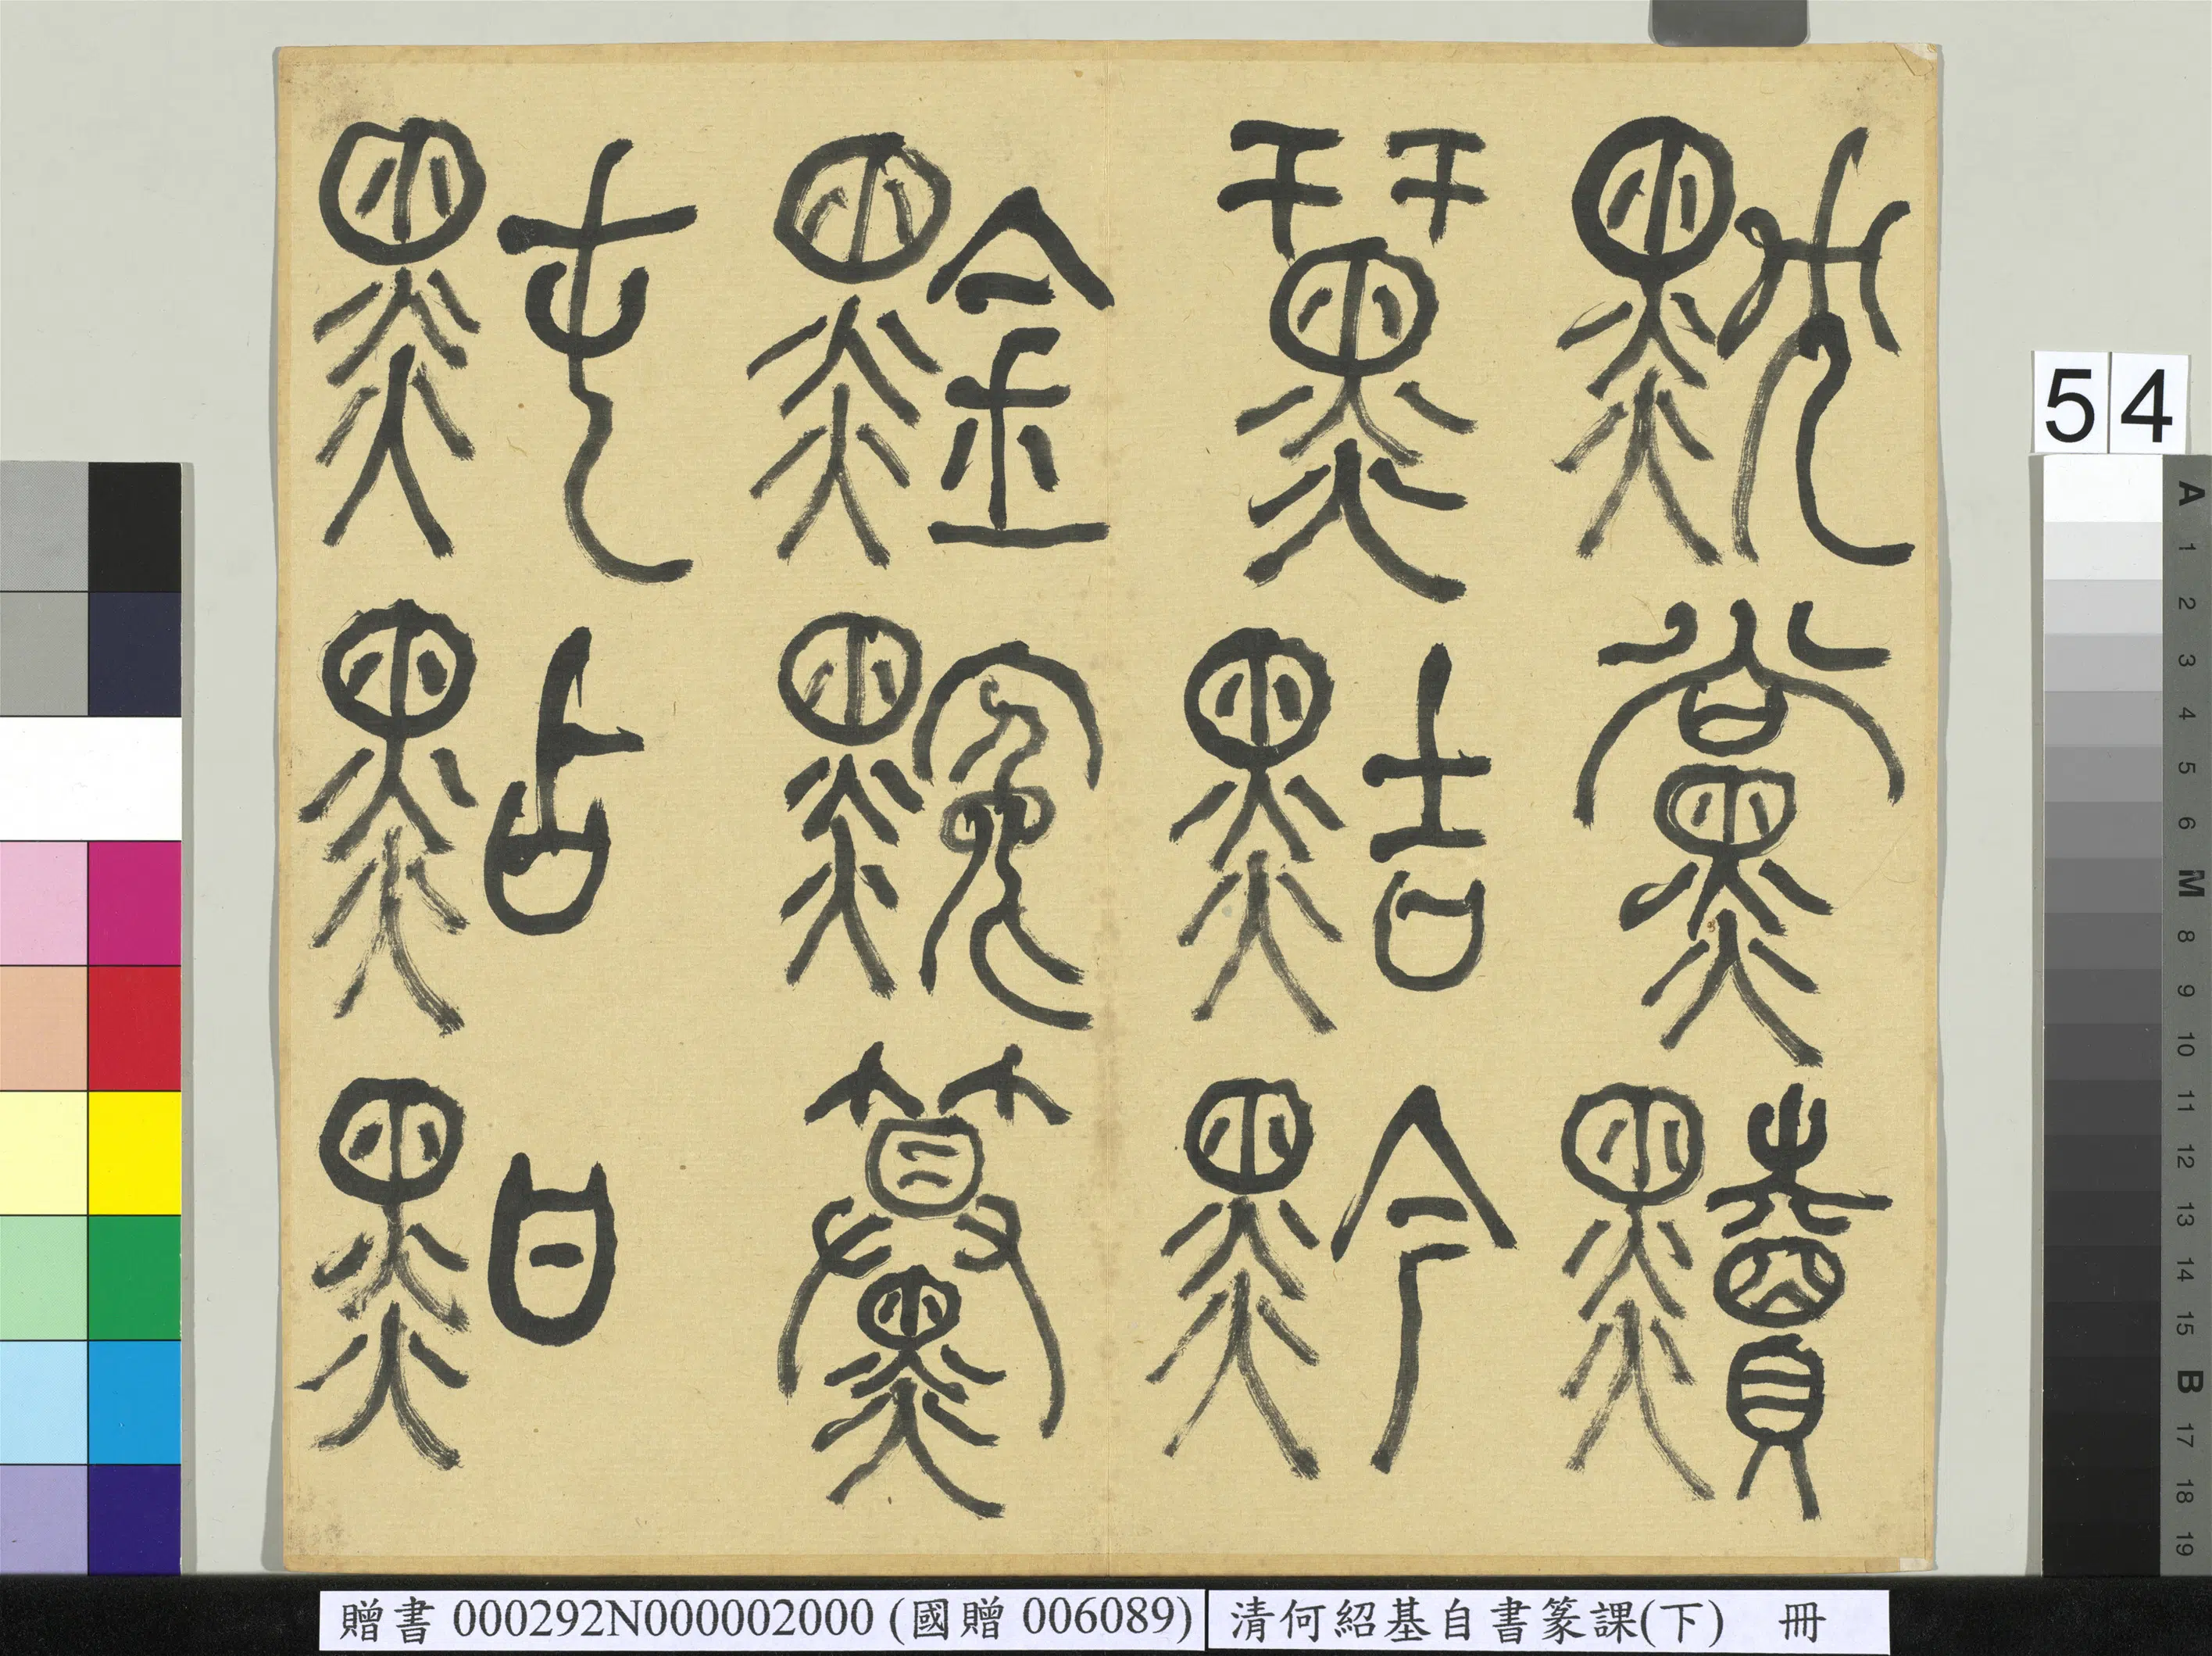 黗點黚
䵫
䵤黠黔
黕黨黷
54
贈書 000292N000002000 (國贈 006089)
清何紹基自書篆課(下) 冊
A 1 2 3 4 5 6 M 8 9 10 11 12 13 14 15 B 17 18 19